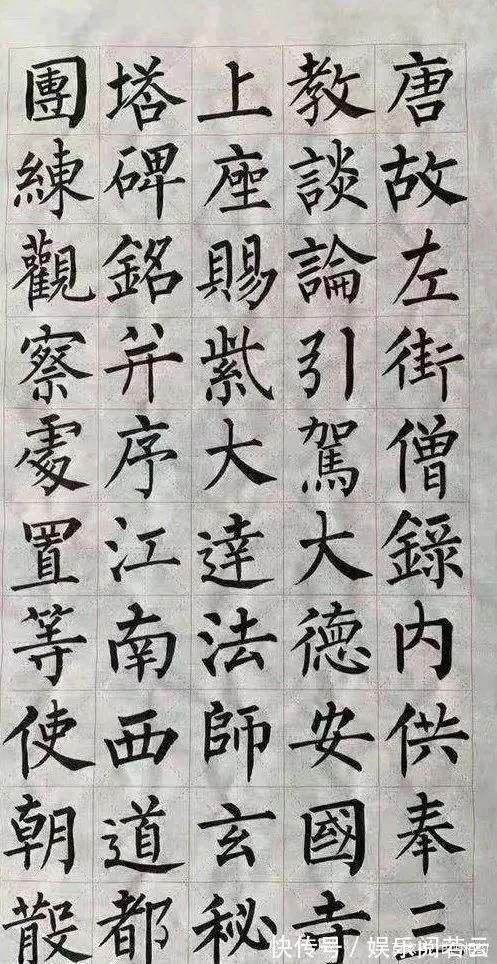 唐故左街僧錄内供奉三
教談論引駕大德安國寺
上座賜紫大達法師玄秘
塔碑銘并序江南西道都
團練觀察處置等使朝散
快传号／娱乐阅若云